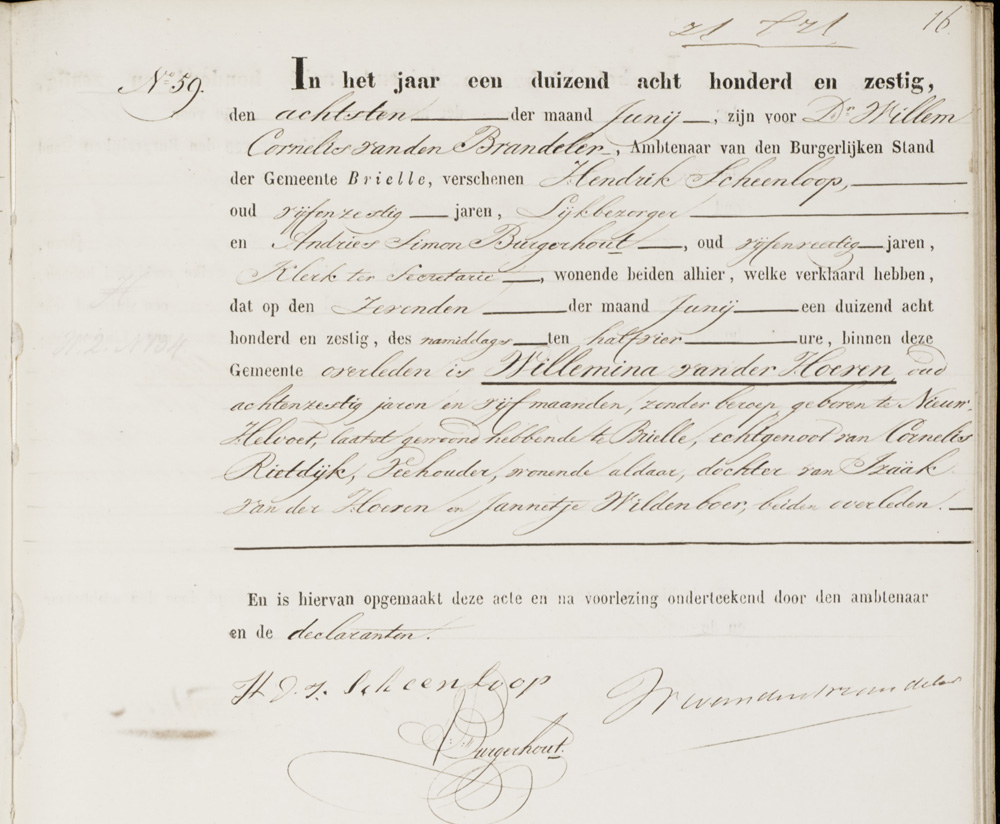 16.
No 59.
In het jaar een duizend acht honderd en zestig,
den achtsten der maand Junij, zijn voor Dr Willem
Cornelis van den Brandeler, Ambtenaar van den Burgerlijken Stand
der Gemeente Brielle, verschenen Hendrik Scheenloop,
oud vijfenzestig jaren, Lijkbezorger
en Andries Simon Burgerhout, oud vijfenveertig jaren,
Klerk ter Secretarie, wonende beiden alhier, welke verklaard hebben,
dat op den Zevenden der maand Junij een duizend acht
honderd en zestig, des namiddags ten halfvier ure, binnen deze
Gemeente overleden is Willemina van der Hoeven, oud
achtenzestig jaren en vijf maanden, zonder beroep, geboren te Nieuw-
Helvoet, laatst gewoond hebbende te Brielle, echtgenoot van Cornelis
Rietdijk, Veehouder, wonende aldaar, dochter van Izaäk
van der Hoeven en Jannetje Wildenboer, beiden overleden.
En is hiervan opgemaakt deze acte en na voorlezing onderteekend door den ambtenaar
en de declaranten.
H. Scheenloop
Burgerhout